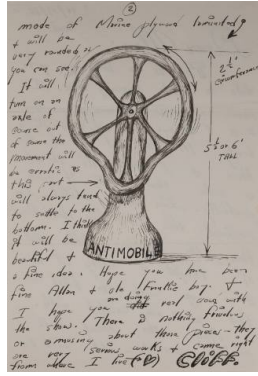 ②
mode of Marine plywood laminated &
& will be
very rounded as
you can see.
It will
turn on an
axle of
course but
of course the
movement will
be erratic as
this part →
will always tend
to settle to the
bottom. I think
it will be
beautiful &
a fine idea. Hope you have been
fine Allan & also Finallis boy. &
I hope you an doing real soon with
the show. There is nothing frivolous
or amusing about these pieces - they
are very serious works & came right
from where I live (♥) Cliff
2½'
circumference
5½ or 6'
TALL
ANTIMOBILE